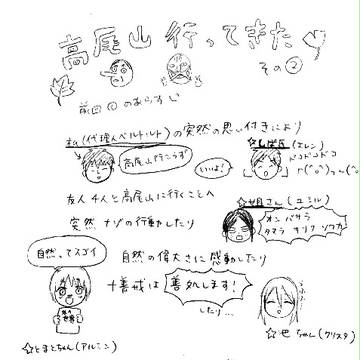 高尾山行ってきた
その②
前回①のあらすじ
私(代理人ベルトルト)の突然の思い付きにより
高尾山行こうず
いいよ!
☆しば氏(エレン)
ドコドコドコ
友人4人と高尾山に行くことへ
☆姐さん(ユミル)
突然ナゾの行動したり
オン バサラ
タマラ キリク ソワカ
自然ってスゴイ
自然の偉大さに感動したり
十善戒は善処します!
したり…
☆とまとちゃん(アルミン)
☆也ちゃん(クリスタ)